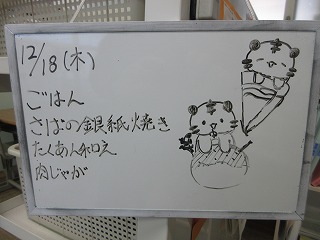 12/18(木)
ごはん
さばの銀紙焼き
たくあん和え
肉じゃが